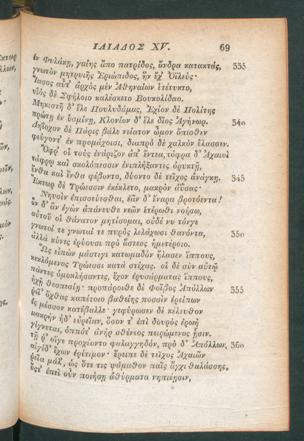 ΙΛΙΑΔΟΣ XV. 69
ἐν Φυλάκῃ, γαίης ἄπο πατρίδος, ἄνδρα κατακτάς, 335
γνωτὸν μητρυιῆς Ἐριώπιδος, ἣν ἔχ' Ὀϊλεύς·
Ἴασος αὖτ' ἀρχὸς μὲν Ἀθηναίων ἐτέτυκτο,
υἱὸς δὲ Σφήλοιο καλέσκετο Βουκολίδαο.
Μηκιστῆ δ' ἕλε Πουλυδάμας, Ἐχίον δὲ Πολίτης
πρώτῃ ἐν ὑσμίνῃ, Κλονίον δ' ἕλε δῖος Ἀγήνωρ. 340
Δηΐοχον δὲ Πάρις βάλε νείατον ὦμον ὄπισθεν
φεύγοντ' ἐν προμάχοισι, διαπρὸ δὲ χαλκὸν ἔλασσεν.
Ὄφρ' οἱ τοὺς ἐνάριζον ἀπ' ἔντεα, τόφρα δ' Ἀχαιοὶ
τάφρῳ καὶ σκολόπεσσιν ἐνιπλήξαντες ὀρυκτῇ,
ἔνθα καὶ ἔνθα φέβοντο, δύοντο δὲ τεῖχος ἀνάγκῃ. 345
Ἕκτωρ δὲ Τρώεσσιν ἐκέκλετο, μακρὸν ἀΰσας·
Νηυσὶν ἐπισσεύεσθαι, ἐᾶν δ' ἔναρα βροτόεντα!
ὃν δ' ἂν ἐγὼν ἀπάνευθε νεῶν ἑτέρωθι νοήσω,
αὐτοῦ οἱ θάνατον μητίσομαι, οὐδέ νυ τόνγε
γνωτοί τε γνωταί τε πυρὸς λελάχωσι θανόντα, 350
ἀλλὰ κύνες ἐρύουσι πρὸ ἄστεος ἡμετέροιο.
Ὣς εἰπὼν μάστιγι κατωμαδὸν ἤλασεν ἵππους,
κεκλόμενος Τρώεσσι κατὰ στίχας. οἱ δὲ σὺν αὐτῷ
πάντες ὁμοκλήσαντες, ἔχον ἐρυσάρματας ἵππους,
ἠχῇ θεσπεσίῃ· προπάροιθε δὲ Φοῖβος Ἀπόλλων 355
ῥεῖ' ὄχθας καπέτοιο βαθείης ποσσὶν ἐρείπων
ἐς μέσσον κατέβαλλε· γεφύρωσεν δὲ κέλευθον
μακρὴν ἠδ' εὐρεῖαν, ὅσον τ' ἐπὶ δουρὸς ἐρωὴ
γίγνεται, ὁππότ' ἀνὴρ σθένεος πειρώμενος ᾖσιν.
τῇ ῥ' οἵγε προχέοντο φαλαγγηδόν, πρὸ δ' Ἀπόλλων, 360
αἰγίδ' ἔχων ἐρίτιμον· ἔρειπε δὲ τεῖχος Ἀχαιῶν
ῥεῖα μάλ', ὡς ὅτε τις ψάμαθον παῖς ἄγχι θαλάσσης,
ὅστ' ἐπεὶ οὖν ποιήσῃ ἀθύρματα νηπιέῃσιν,